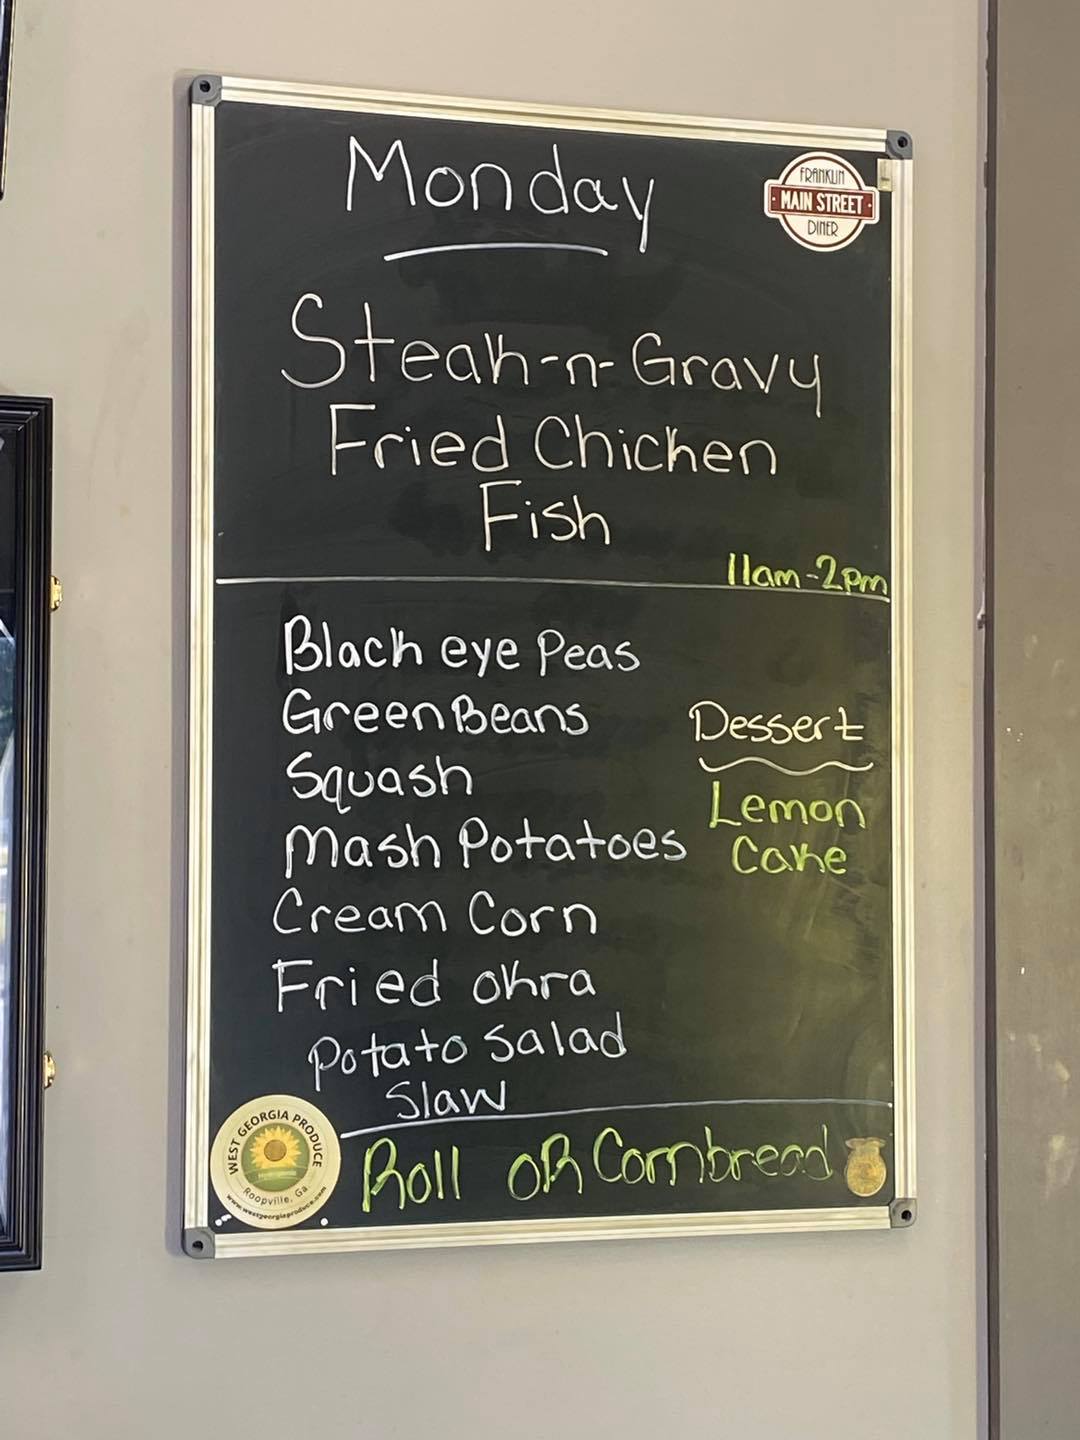 Monday
FRANKLIN
MAIN STREET
DINER
Steak-n-Gravy
Fried Chicken
Fish
11am-2pm
Black eye Peas
Green Beans
Squash
Mash Potatoes
Cream Corn
Fried okra
Potato Salad
Slaw
Dessert
Lemon
Cake
Roll OR Cornbread
WEST GEORGIA PRODUCE
Roopville, Ga.
www.westgeorgiaproduce.com